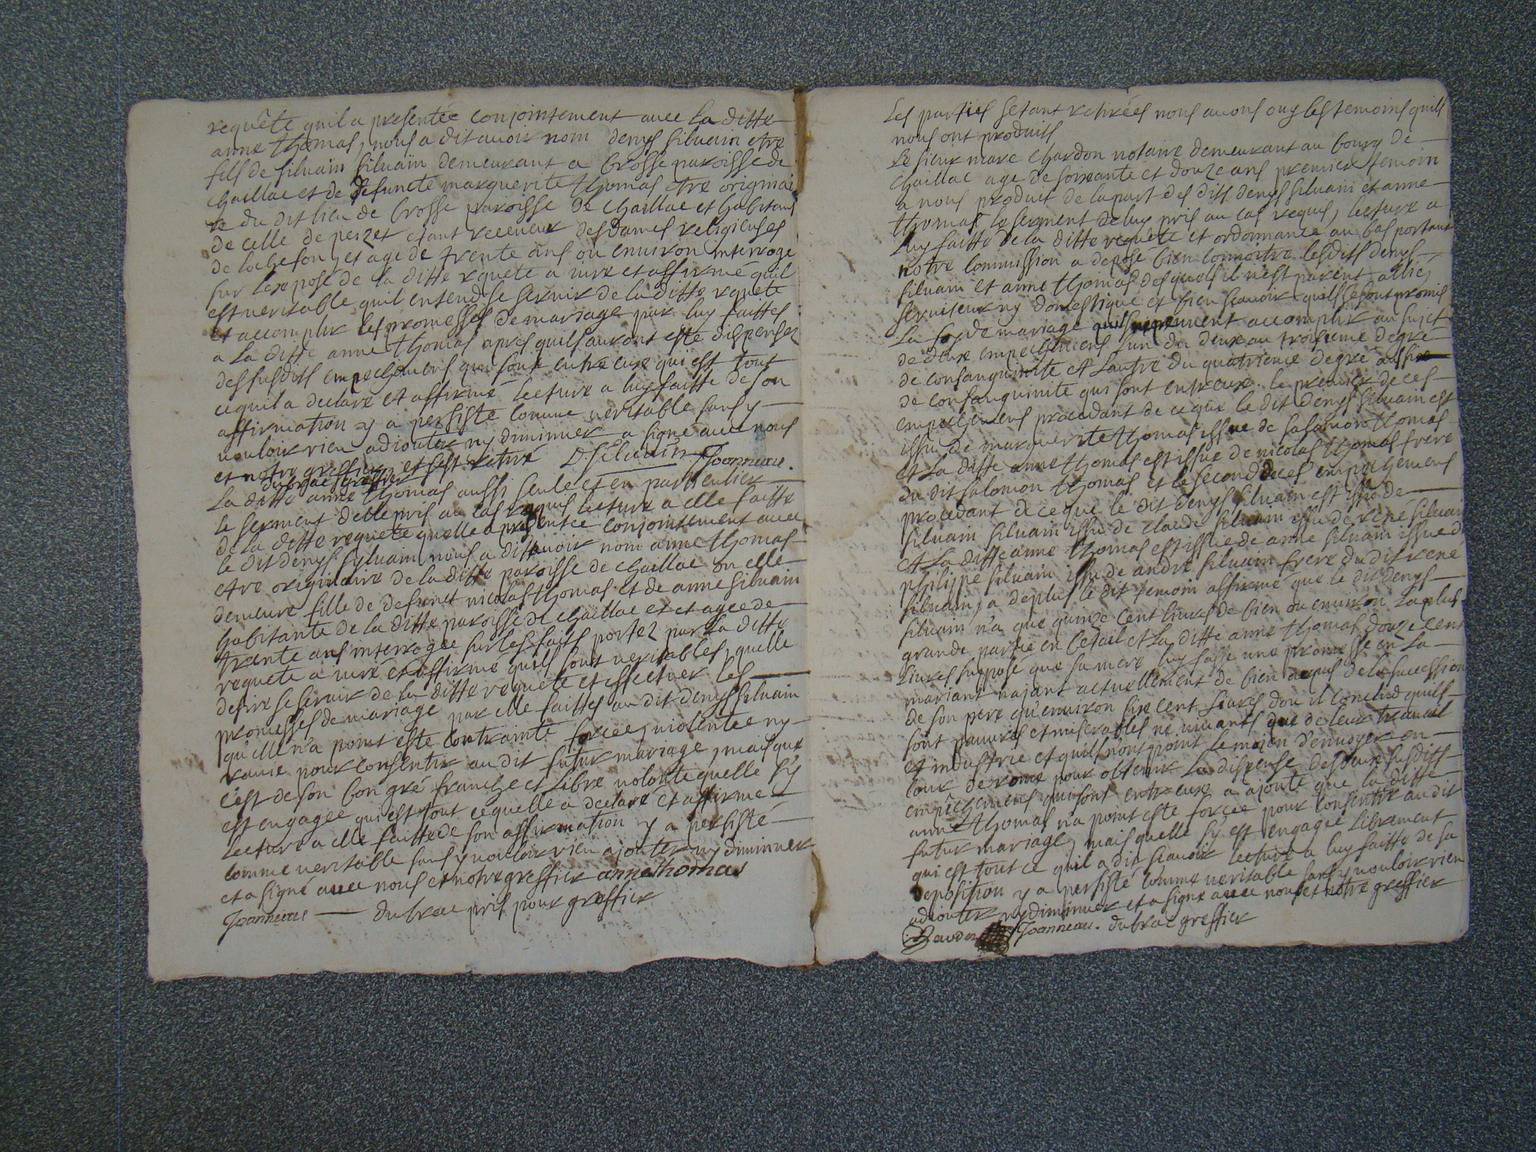 requête quil a presentée conjointement avec la ditte
anne thomas, nous a dit avoir nom denys silvain etre
fils de silvain silvain demeurant a brosse paroisse de
chaillac et de defuncte marguerite thomas etre originai
re du dit lieu de brosse paroisse de chaillac et habitant
de celle de etant receveur des dames religieuses
de et age de trente ans ou environ interroge
sur lexposé de la ditte rquete a juré et affirmé quil
est veritable quil entend se servir de la ditte rquete
et accomplir les promesses de mariage par luy faittes
a la ditte anne thomas apres quils auront esté dispensez
des susdots empechemens qui sont entre eux qui est tout
ce quil a declaré et affirmé lecture a luy faitte de son
affirmation y a persisté comme veritable sans y
vouloir rien adjouter ny diminuer a signe avec nous
et notre greffier et sest retiré D silvain Joanneau.
dubrac greffier
La ditte anne thomas aussi seule et en particulier
le serment delle pris au cas requis lecture a elle faitte
de la ditte requete quelle a presentée conjointement avec
le dit denys sylvain, nous a dit avoir nom anne thomas
etre originaire de la ditte paroisse de chaillac ou elle
demeure fille de defunct nicolas thomas et de anne silvain
habitante de la ditte paroisse de chaillac et et agée de
trente ans interrogée sur les faits portez par la ditte
requete a juré et affirmé quils sont veritables, quelle
desire se servir de la ditte requete et effectuer les
promesses de mariage par elle faittes au dit denys silvain
qu'elle n'a point esté contrainte forcée, violentée ny
ravie pour consentir au dit futur mariage, mais que
c'est de son bon gré franche et libre volonte quelle s'y
est engagée qui est tout ce quelle a declaré et affirmé
lecture a elle faitte de son affirmation y a persisté
comme veritable sans y vouloir rien ajouter ny diminuer
et a signé avec nous et notre greffier anne thomas
Joanneau dubrac pris pour greffier
Les parties setant retirées nous avons ouy les temoins quils
nous ont produits
Le sieur marc chardon notaire demeurant au bourg de
chaillac age de soixante et douze ans premier temoin
a nous produit de la part des dits denys silvain et anne
thomas le serment de luy pris au cas requis, lecture a
luy faitte de la ditte requete et ordonnance au bas portant
notre commission a deposé bien connoitre lesdits denys
silvain et anne thomas desquels il n'est parent, allié,
serviteur ny domestique et bien scavoir quils se sont promis
la foy de mariage quils ne peuvent accomplir au sujet
de deux empechemens lun du deux au troisieme degré
de consanguinité et l'autre du quatrieme degré aussi
de consanguinité qui sont entre eux le premier de ces
empechemens procedant de ce que le dit denys silvain est
issu de marguerite thomas issue de salomon thomas
et la ditte anne thomas est issue de nicolas thomas frere
du dit salomon thomas et le second de ces empechemens
procedant de ce que le dit denys silvain est issu de
silvain silvain issu de claude silvain issu de rene silvain
et la ditte anne thomas est issue de anne silvain issue de
philippe silvain issu de andré silvain frere du dit rene
silvain, a de plus le dit temoin affirmé que le dit denys
silvain n'a que quinze cent livres de bien ou environ la plus
grande partie en betail et la ditte anne thomas douze cens
livres supposé que sa mere luy fasse une promesse en la
mariant n'ajant actuellement de bien acquis de la succession
de son pere qu'environ six cent livres dou il conclud quils
sont pauvres et miserables ne vivants que de leur travail
et industrie et quils n'ont point le moien d'envoyer en
cour de rome pour obtenir la dispense des deux susdits
empechemens qui sont entre eux a ajouté que la ditte
anne thomas n'a point esté forcée pour consentir au dit
futur mariage, mais quelle s'y est engagée librement
qui est tout ce quil a dit scavoir lecture a luy faitte de sa
deposition y a persisté comme veritable sans y vouloir rien
adjouter ny diminuer et a signé avec nous et notre greffier
Joanneau. dubrac greffier